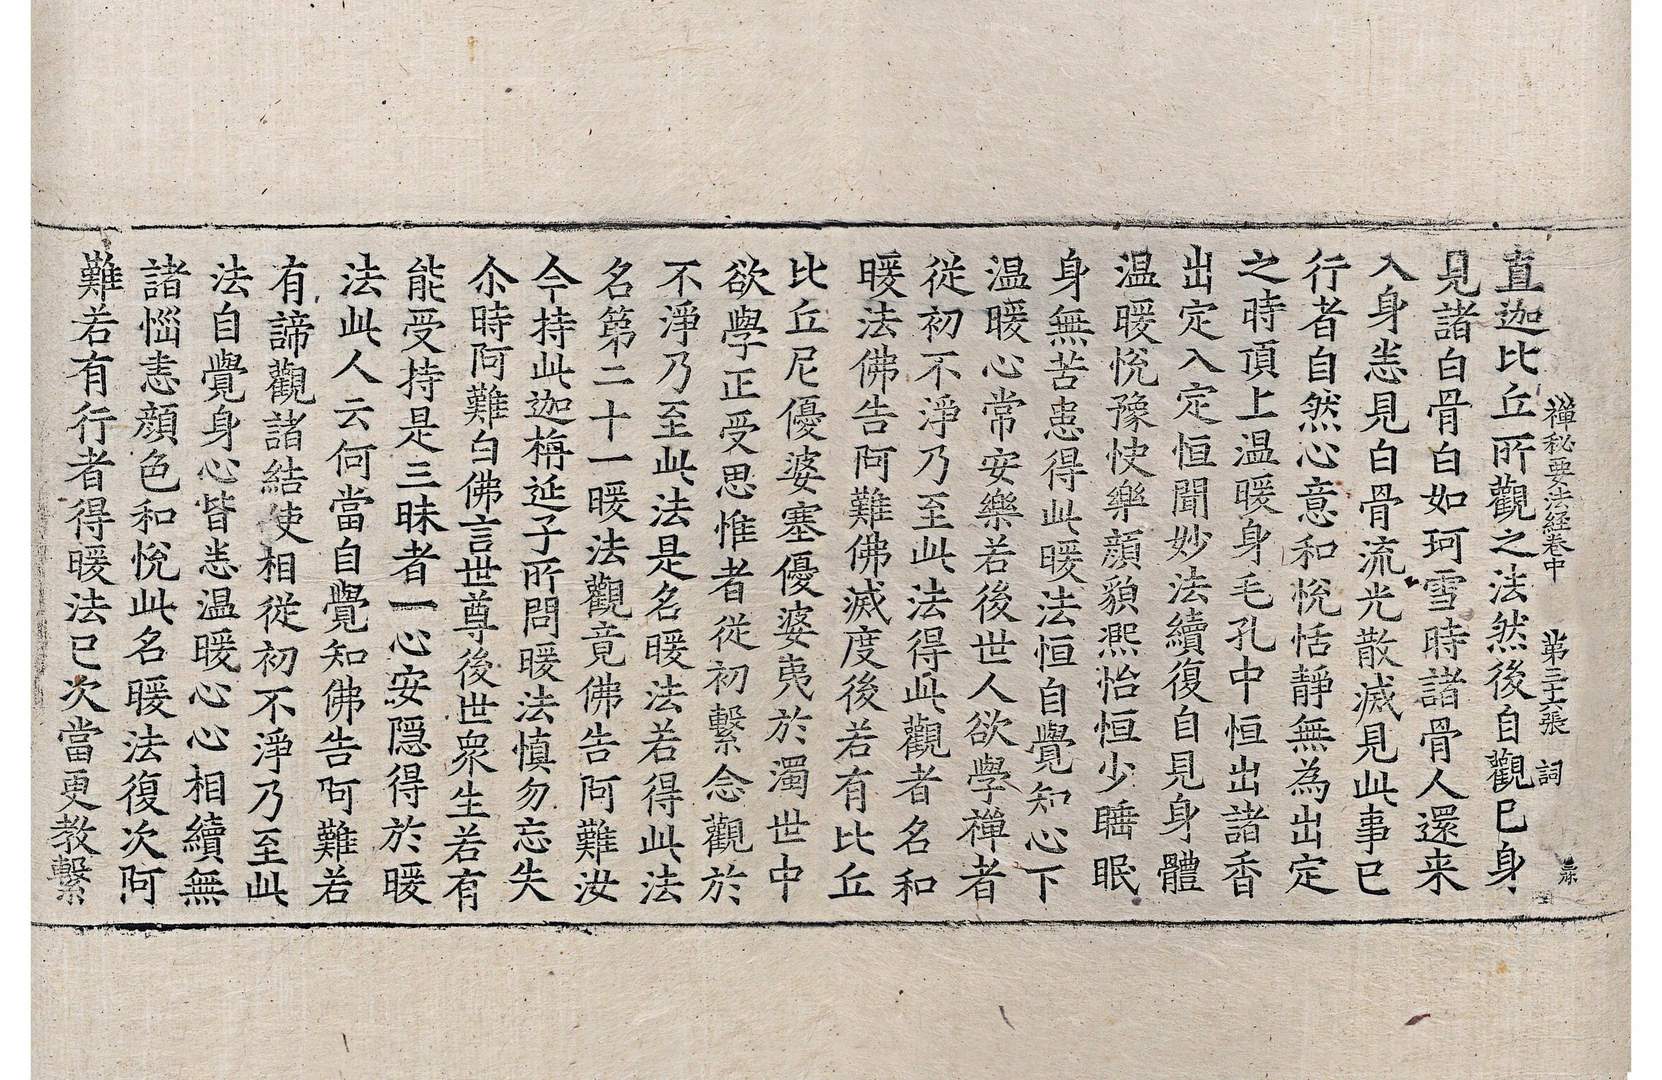 禪秘要法經卷中 第三十六張 詞
直迦比丘所觀之法然後自觀已身
見諸白骨白如珂雪時諸骨人還来
入身恙見白骨流光散滅見此事已
行者自然心意和悅恬靜無為出定
之時頂上温暖身毛孔中恒出諸香
出定入定恒聞妙法續復自見身體
温暖悅豫快樂顔貌熙怡恒少睡眠
身無苦患得此暖法恒自覺知心下
温暖心常安樂若後世人欲學禪者
從初不淨乃至此法得此觀者名和
暖法佛告阿難佛滅度後若有比丘
比丘尼優婆塞優婆夷於濁世中
欲學正受思惟者從初繫念觀於
不淨乃至此法是名暖法若得此法
名第二十一暖法觀竟佛告阿難汝
今持此迦栴延子所問暖法慎勿忘失
尒時阿難白佛言世尊後世衆生若有
能受持是三昧者一心安隱得於暖
法此人云何當自覺知佛告阿難若
有諦觀諸結使相從初不淨乃至此
法自覺身心皆恙温暖心心相續無
諸惱恚顔色和悅此名暖法復次阿
難若有行者得暖法已次當更教繫